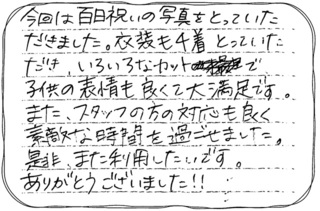 今回は百日祝いの写真をとっていた
だきました。衣装も4着 とっていた
だき、いろいろなカットで
子供の表情も良くて大満足です。
また、スタッフの方の対応も良く
素敵な時間を過ごせました。
是非、また利用したいです。
ありがとうございました!!